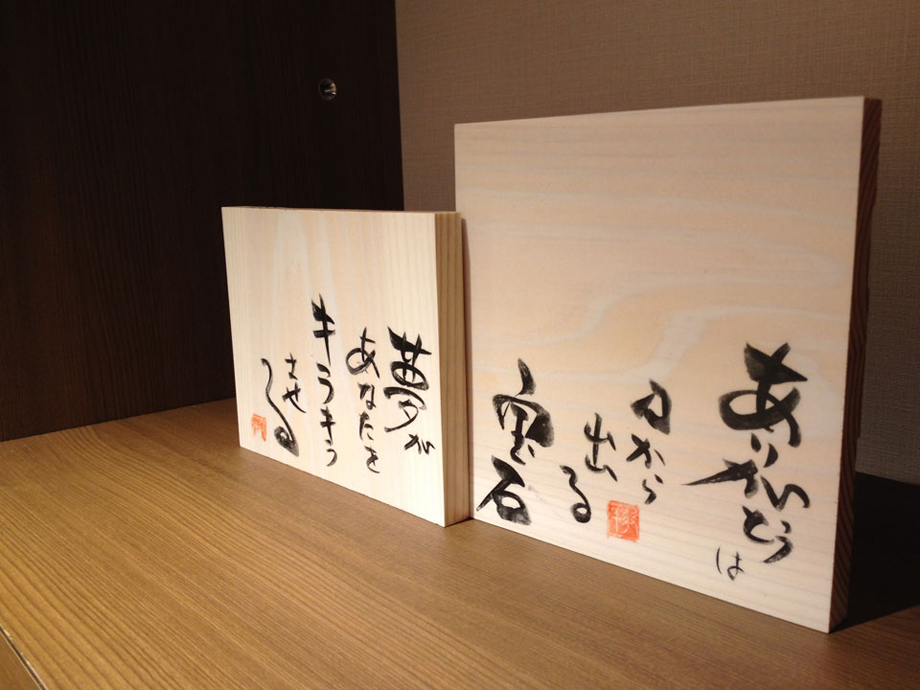 ありがとうは
口から
出る
宝石
夢が
あなたを
キラキラ
させる